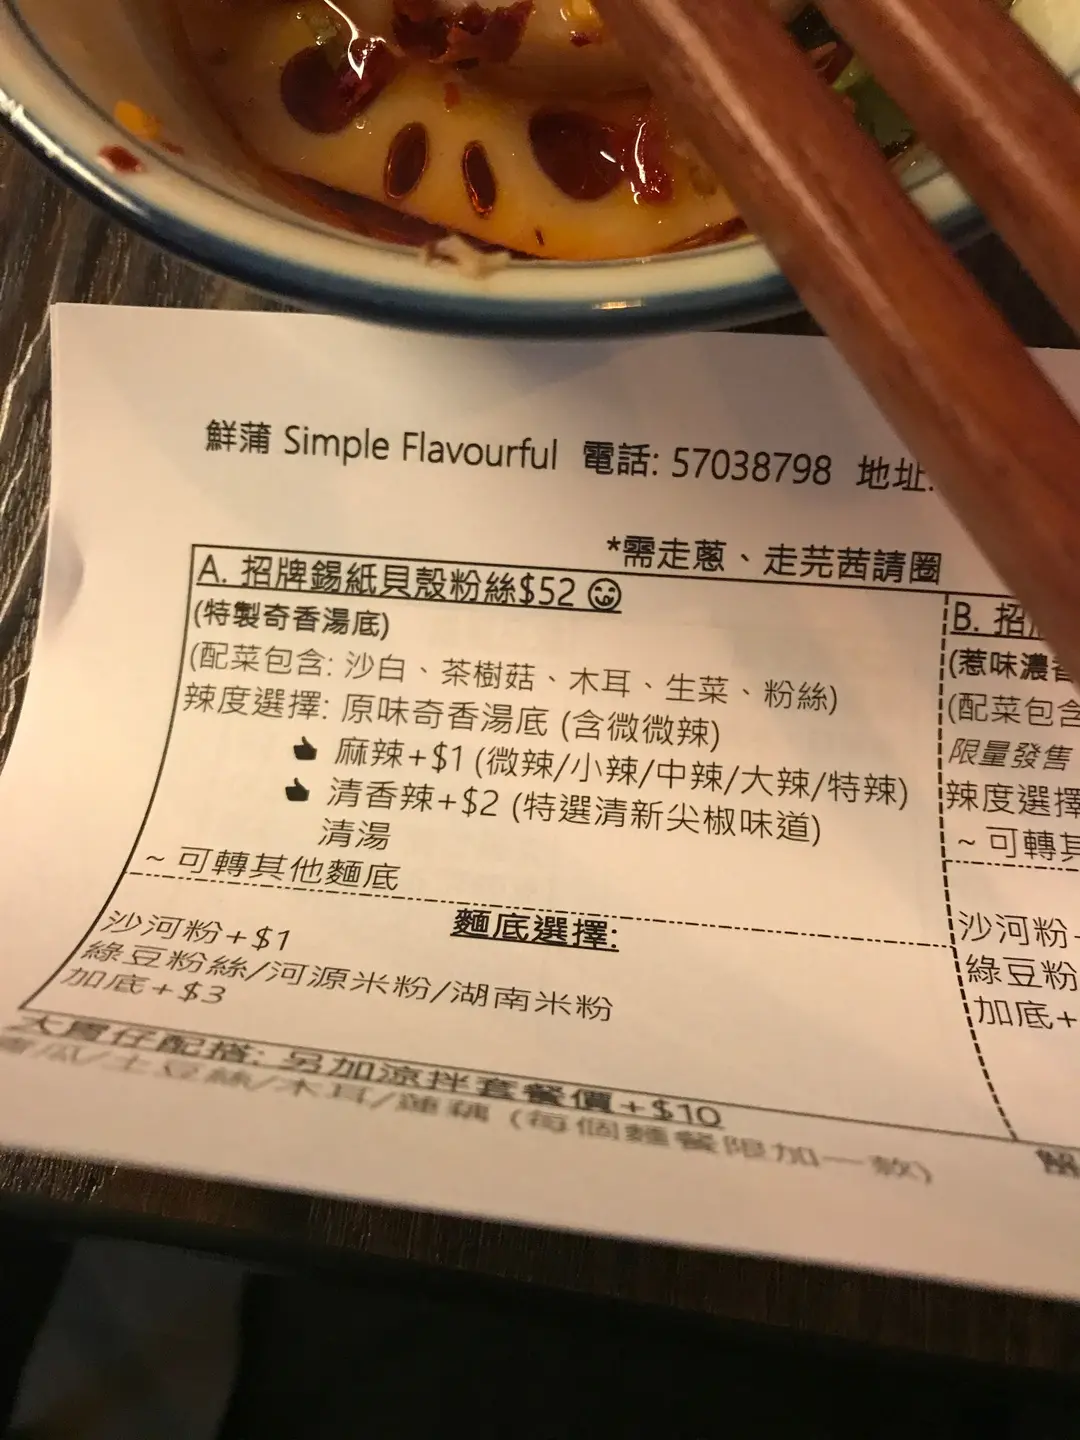 鮮蒲 Simple Flavourful 電話: 57038798 地址:
*需走蔥、走芫茜請圈
A. 招牌錫紙貝殼粉絲$52
(特製奇香湯底)
(配菜包含: 沙白、茶樹菇、木耳、生菜、粉絲)
辣度選擇: 原味奇香湯底 (含微微辣)
麻辣+$1 (微辣/小辣/中辣/大辣/特辣)
清香辣+$2 (特選清新尖椒味道)
清湯
~ 可轉其他麵底
麵底選擇:
沙河粉+$1
綠豆粉絲/河源米粉/湖南米粉
加底+$3
大胃仔配搭: 另加涼拌套餐價+$10
青瓜/土豆絲/木耳/蓮藕 (每個麵餐限加一款)
B. 招
(惹味濃香
(配菜包含
限量發售
辣度選擇
~ 可轉其
沙河粉
綠豆粉
加底+